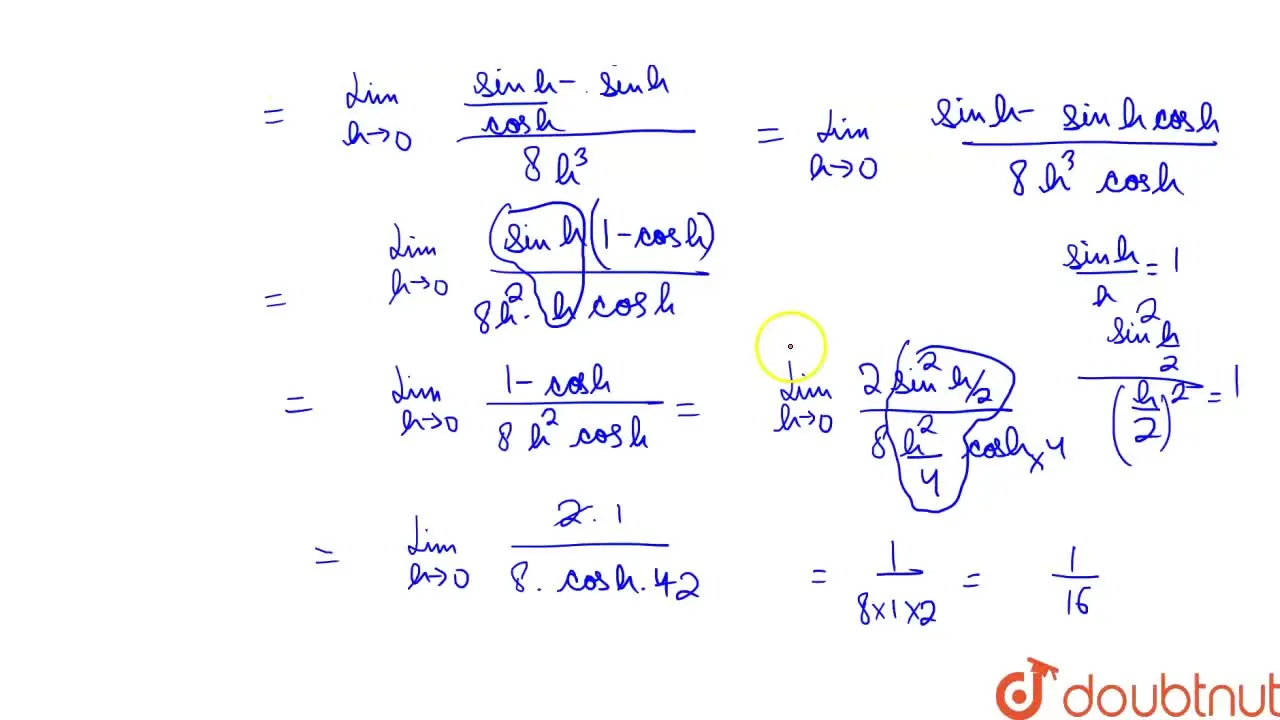 = Lim h→0 (sin h/cos h − sin h)/(8h³) = Lim h→0 (sin h − sin h cos h)/(8h³ cos h)
= Lim h→0 (sin h (1 − cos h))/(8h². h cos h)
sin h/h = 1
= Lim h→0 (1 − cos h)/(8h² cos h) = Lim h→0 (2 sin² h/2)/(8 h²/4 cos h × 4)
sin² h/2/(h/2)² = 1
= Lim h→0 (2. 1)/(8. cos h. 4 2) = 1/(8×1×2) = 1/16
doubtnut